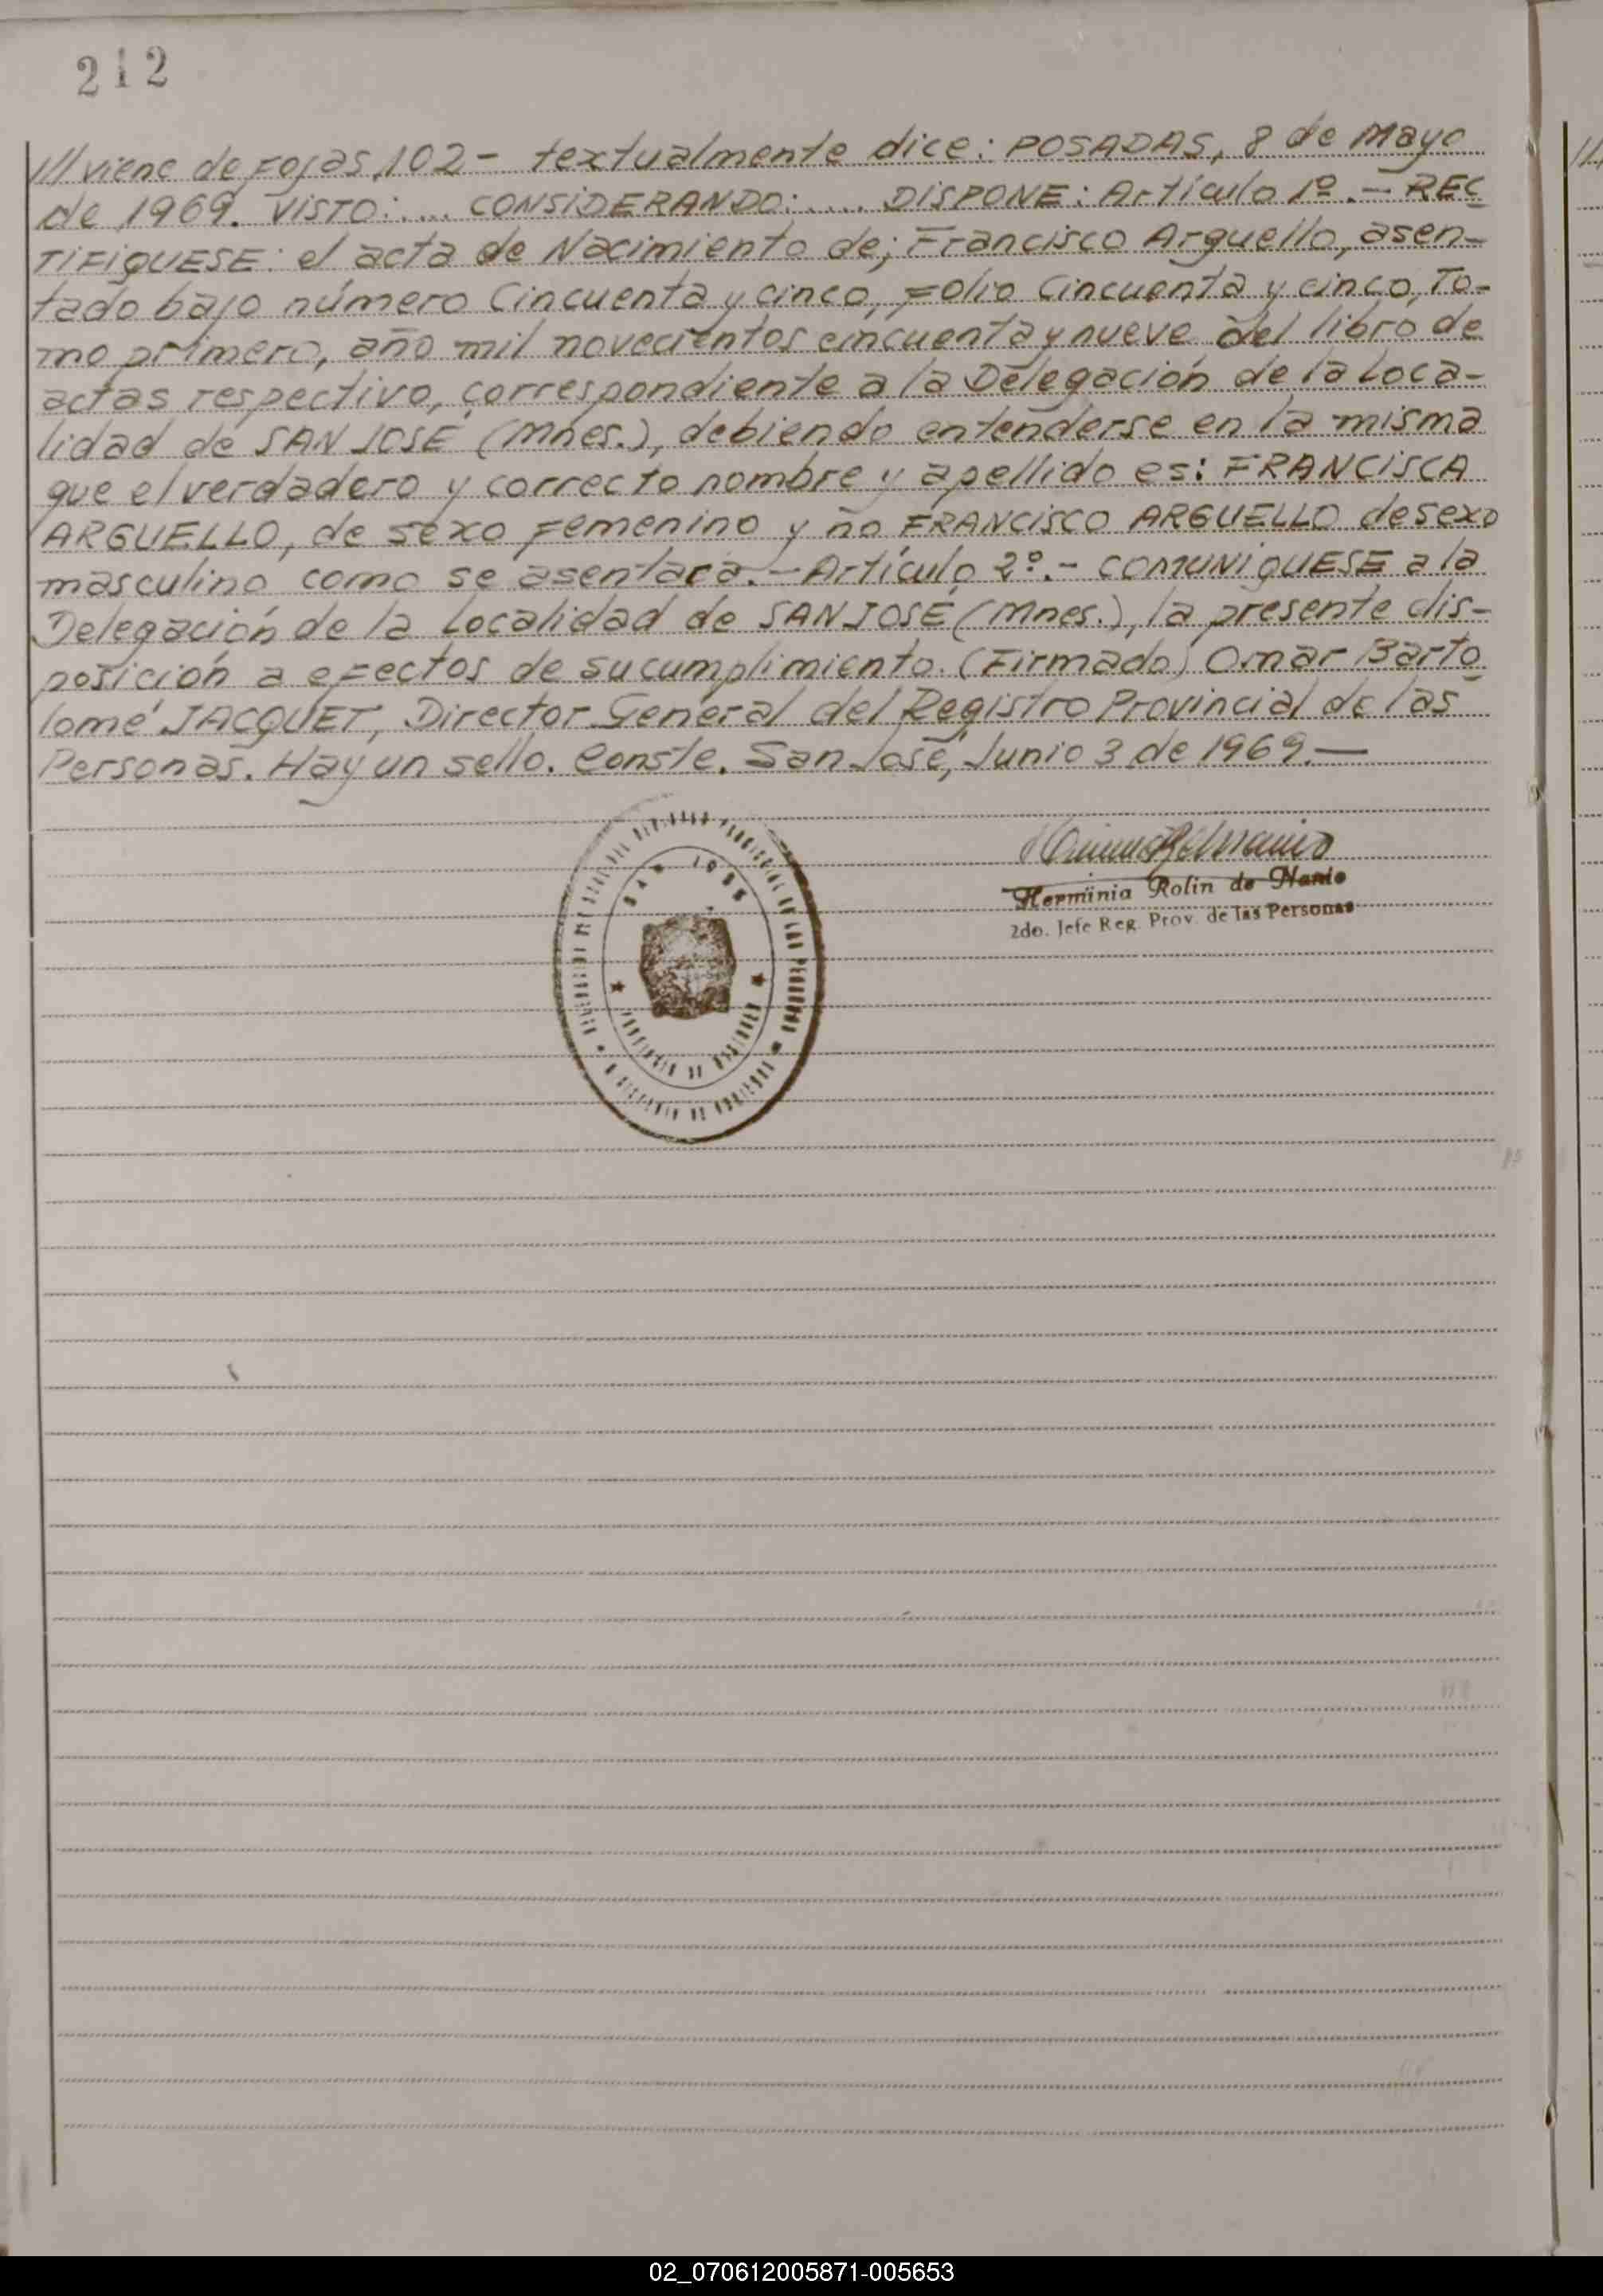 212
/// viene de Fojas 102 - textualmente dice: POSADAS, 8 de Mayo
de 1969. VISTO:.... CONSIDERANDO:.... DISPONE: Artículo 1º.- REC
TIFIQUESE: el acta de Nacimiento de; Francisco Arguello, asen-
tado bajo número Cincuenta y cinco, Folio Cincuenta y cinco, To-
mo primero, año mil novecientos cincuenta y nueve del libro de
actas respectivo, correspondiente a la Delegación de la Loca-
lidad de SAN JOSÉ (Mnes.), debiendo entenderse en la misma
que el verdadero y correcto nombre y apellido es: FRANCISCA
ARGUELLO, de sexo Femenino y no FRANCISCO ARGUELLO de sexo
masculino como se asentara.- Artículo 2º.- COMUNIQUESE a la
Delegación de la Localidad de SAN JOSÉ (Mnes.), la presente dis-
posición a efectos de su cumplimiento. (Firmado) Omar Barto
lomé JACQUET, Director General del Registro Provincial de las
Personas. Hay un sello. Conste. San José, Junio 3 de 1969.—
SAN JOSE
Herminia Rolin de Nanio
2do. Jefe Reg. Prov. de las Personas
02_070612005871-005653